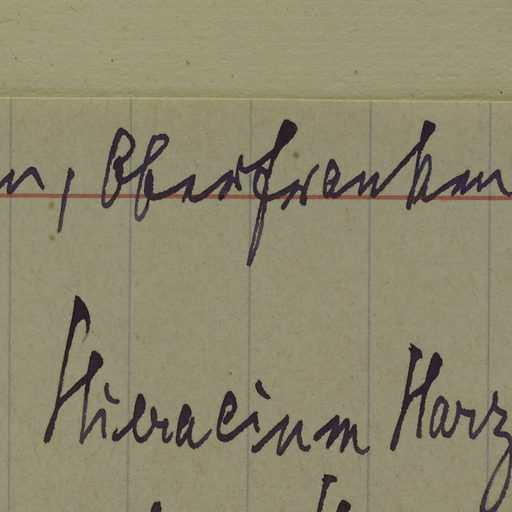 n, Oberfranken
Hieracium Harz